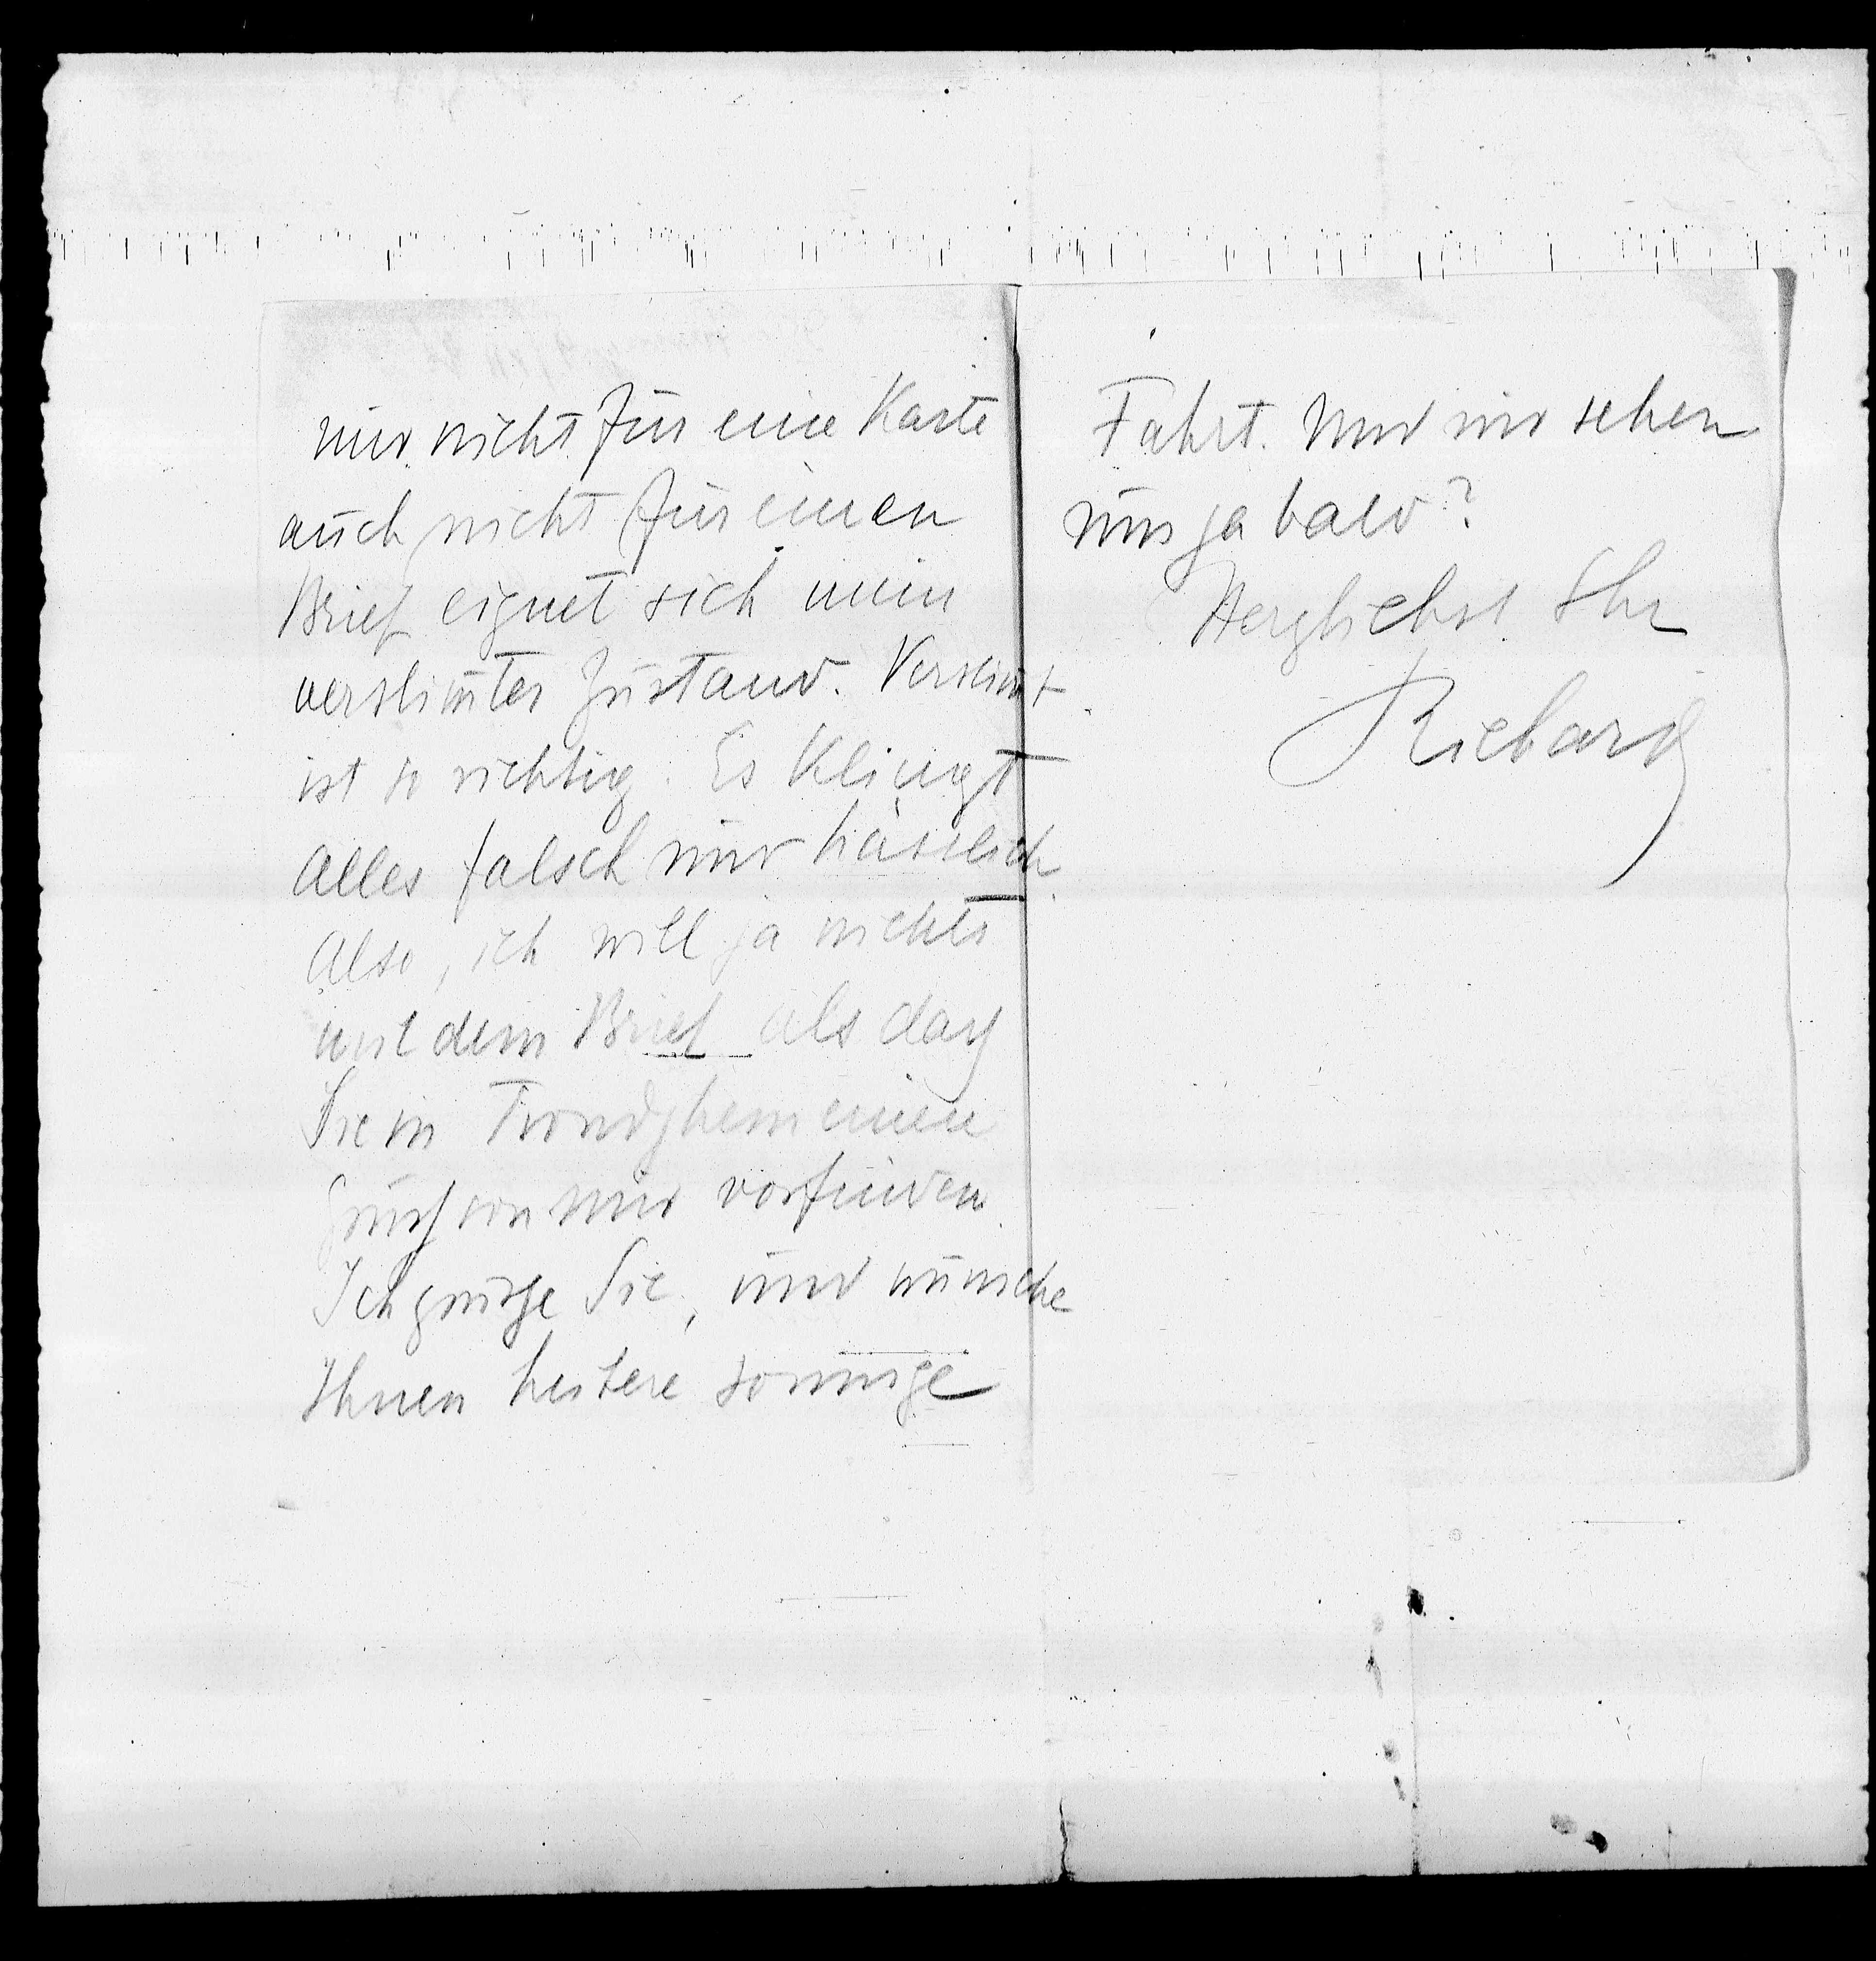 und nicht für eine Karte
auch nicht für einen
Brief eignet sich mein
verstimter Zustand. Verstimt
ist so richtig. Es klingt
Alles falsch und hässlich.
Also, ich will ja nichts
mit dem Brief als daß
Sie in Trondjhem einen
Gruß von mir vorfinden.
Ich grüße Sie, und wünsche
Ihnen heitere sonnige
Fahrt. Und wir sehen
uns ja bald?
Herzlichst Ihr
Richard